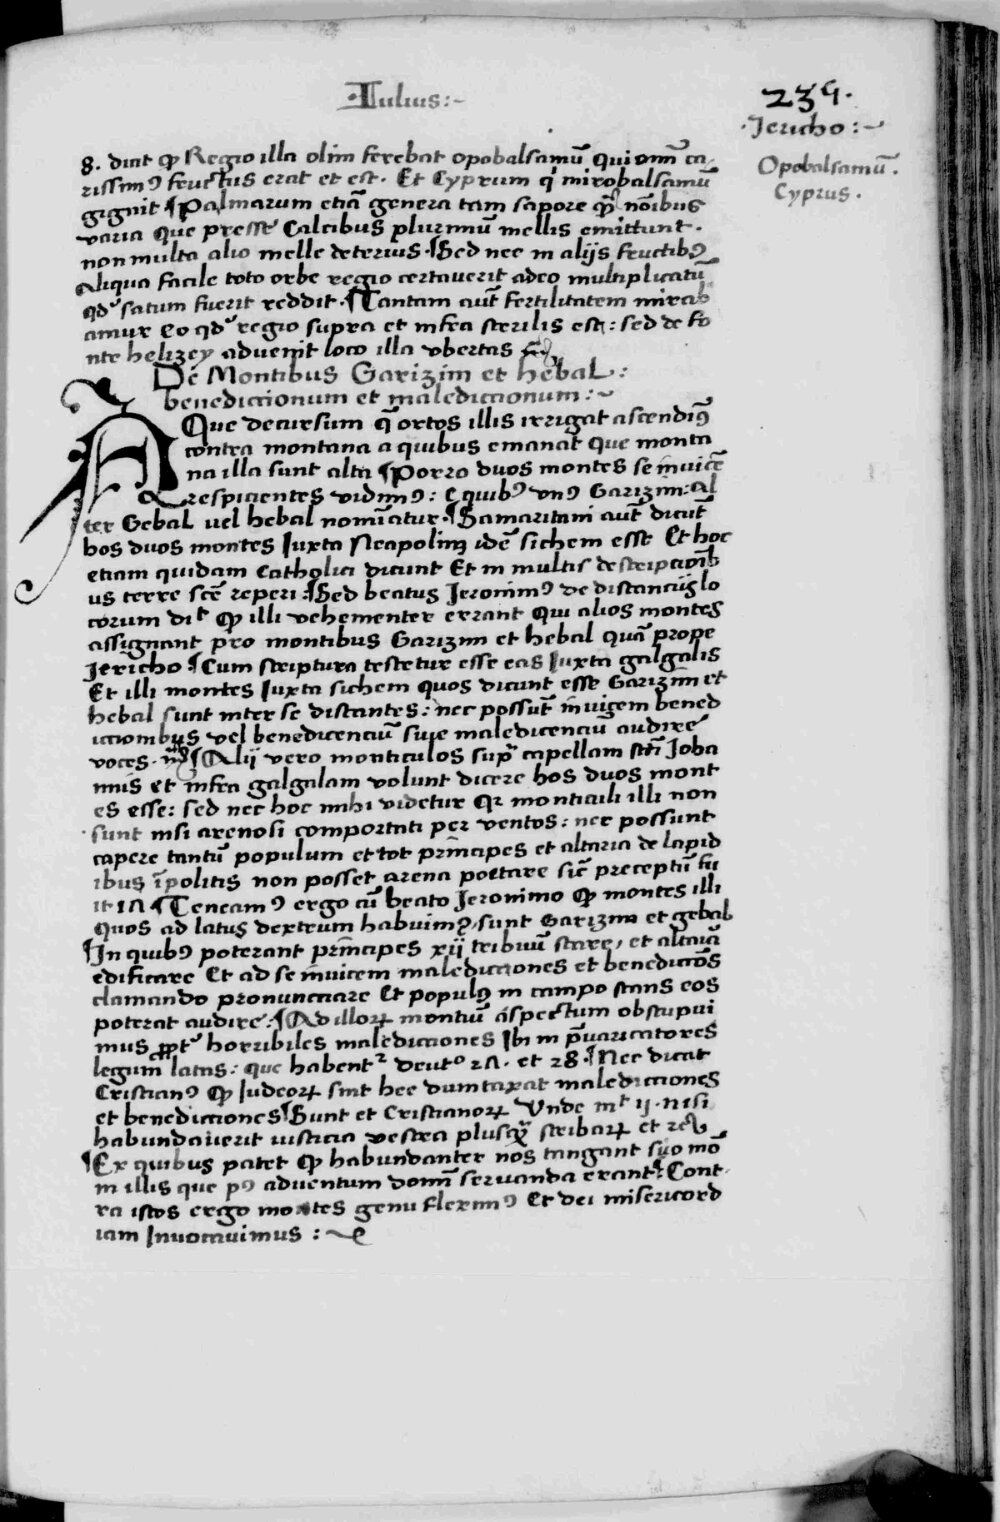 ·Iulius:~
239.
·Jericho:~
Opobalsamū.
Cyprus.
8. dicit ꝙ Regio illa olim ferebat opobalsamū qui omī ca-
rissimꝰ fructus erat et est. Et Cyprum q̇ mirobalsamū
gignit ¶Palmarum etiā genera tam sapore q̄ȝ noībus
varia que presse Calcibus plurimū mellis emittunt.
non multa alio melle deterius ¶Sed nec in alijs fructibꝰ
aliqua facile toto orbe regio certaverit adeo multiplicatū
qdꝰ satum fuerit reddit ¶Tantam aut̄ fertilitatem mirab
amur eo qdꝰ regio supra et infra sterilis est: sed de fo
nte helizey advenit loco illa vbertas
De Montibus Garizim et hebal:
benedictionum et maledictionum:~
AQue decursum q̄ ortos illis irrigat ascendimꝰ
contra montana a quibus emanat que monta
na illa sunt alta ¶Porro duos montes se invicē
respicientes vidimꝰ: e quibꝰ vnꝰ Garizim: al
ter Gebal vel hebal nominatur ¶Samaritani aut̄ dicūt
hos duos montes Iuxta Neapolim idē sichem esse Et hoc
etiam quidam Catholici dicunt Et in multis descriptionib
us terre scē reperi: ¶Sed beatus Jeronimꝰ de distancijs lo
corum dit ꝙ illi vehementer errant qui alios montes
assignant pro montibus Garizim et hebal quā prope
Jericho ¶Cum scriptura testetur esse eas Iuxta galgalis
Et illi montes Iuxta sichem quos dicunt esse Garizim et
hebal sunt inter se distantes: nec possūt invicem bened
iccionibus vel benedicenciū sive maledicenciū audire
voces. ¶Alij vero monticulos supͣ capellam scti Joha
nnis et infra galgalam volunt dicere hos duos mont
es esse: sed nec hoc mihi videtur qꝛ monticuli illi non
sunt nisi arenosi comportati per ventos: nec possunt
capere tantū populum et tot principes et altaria de lapid
ibus īpolitis non posset arena portare sic̄ preceptū fu
it ¶Teneamꝰ ergo cū beato Jeronimo ꝙ montes illi
quos ad latus dextrum habuimꝰ, sunt Garizim et gebal
¶In quibꝰ poterant principes xij tribuū stare, et altaria
edificare Et ad se invicem maledicciones et benedictōes
clamando pronunciare Et populꝰ in campo stans eos
poterat audire: ¶Ad illoꝝ montiū aspectum obstupui
mus ꝓptꝰ horribiles maledicciones Ibi in p̄varicatores
legum latas: que habentꝛ deutº 27. et 28 ¶Nec dicat
Cristianꝰ ꝙ Iudeoꝝ sint hee dumtaxat maledicciones
et benedicciones ¶Sunt et Cristianoꝝ Vnde mt ij. nisi
habundaverit iusticia vestra plusqȝ scribaꝝ et re
¶Ex quibus patet ꝙ habundanter nos tangant suo mō
in illis que pꝰ adventum domī servanda erant: ¶Cont-
ra istos ergo montes genu fleximꝰ Et dei misericord
iam Invocavimus :~